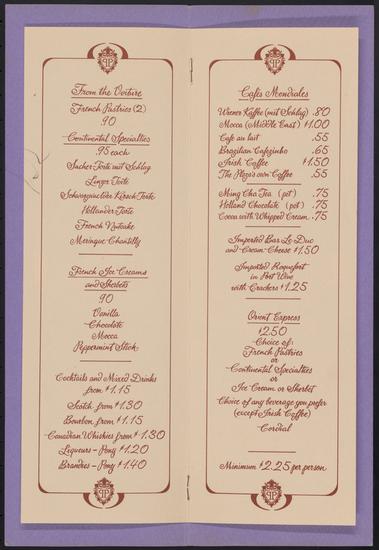 From the Voiture
French Pastries (2)
90
Continental Specialties
.95 each
Sacher Torte mit Schlag
Linzer Torte
Schwarzwalder Kirsch Torte
Hollander Torte
French Nutcake
Meringue Chantilly
French Ice Creams
and Sherbets
90
Vanilla
Chocolate
Mocca
Peppermint Stick
Cocktails and Mixed Drinks
from $1.15
Scotch from $1.30
Bourbon from $1.15
Canadian Whiskies from $1.30
Liqueurs - Pony $1.20
Brandies - Pony $1.40
Cafes Mondiales
Wiener Kaffee (mit Schlag) .80
Mocca (Middle East) $1.00
Cafe au lait .55
Brazilian Cafezinho .65
Irish Coffee $1.50
The Plaza's own Coffee .55
Ming Cha Tea (pot) .75
Holland Chocolate (pot) .75
Cocoa with Whipped Cream .75
Imported Bar Le Duc
and Cream Cheese $1.50
Imported Roquefort
in Port Wine
with Crackers $1.25
Orient Express
$2.50
Choice of:
French Pastries
or
Continental Specialties
or
Ice Cream or Sherbet
Choice of any beverage you prefer
(except Irish Coffee)
Cordial
Minimum $2.25 per person